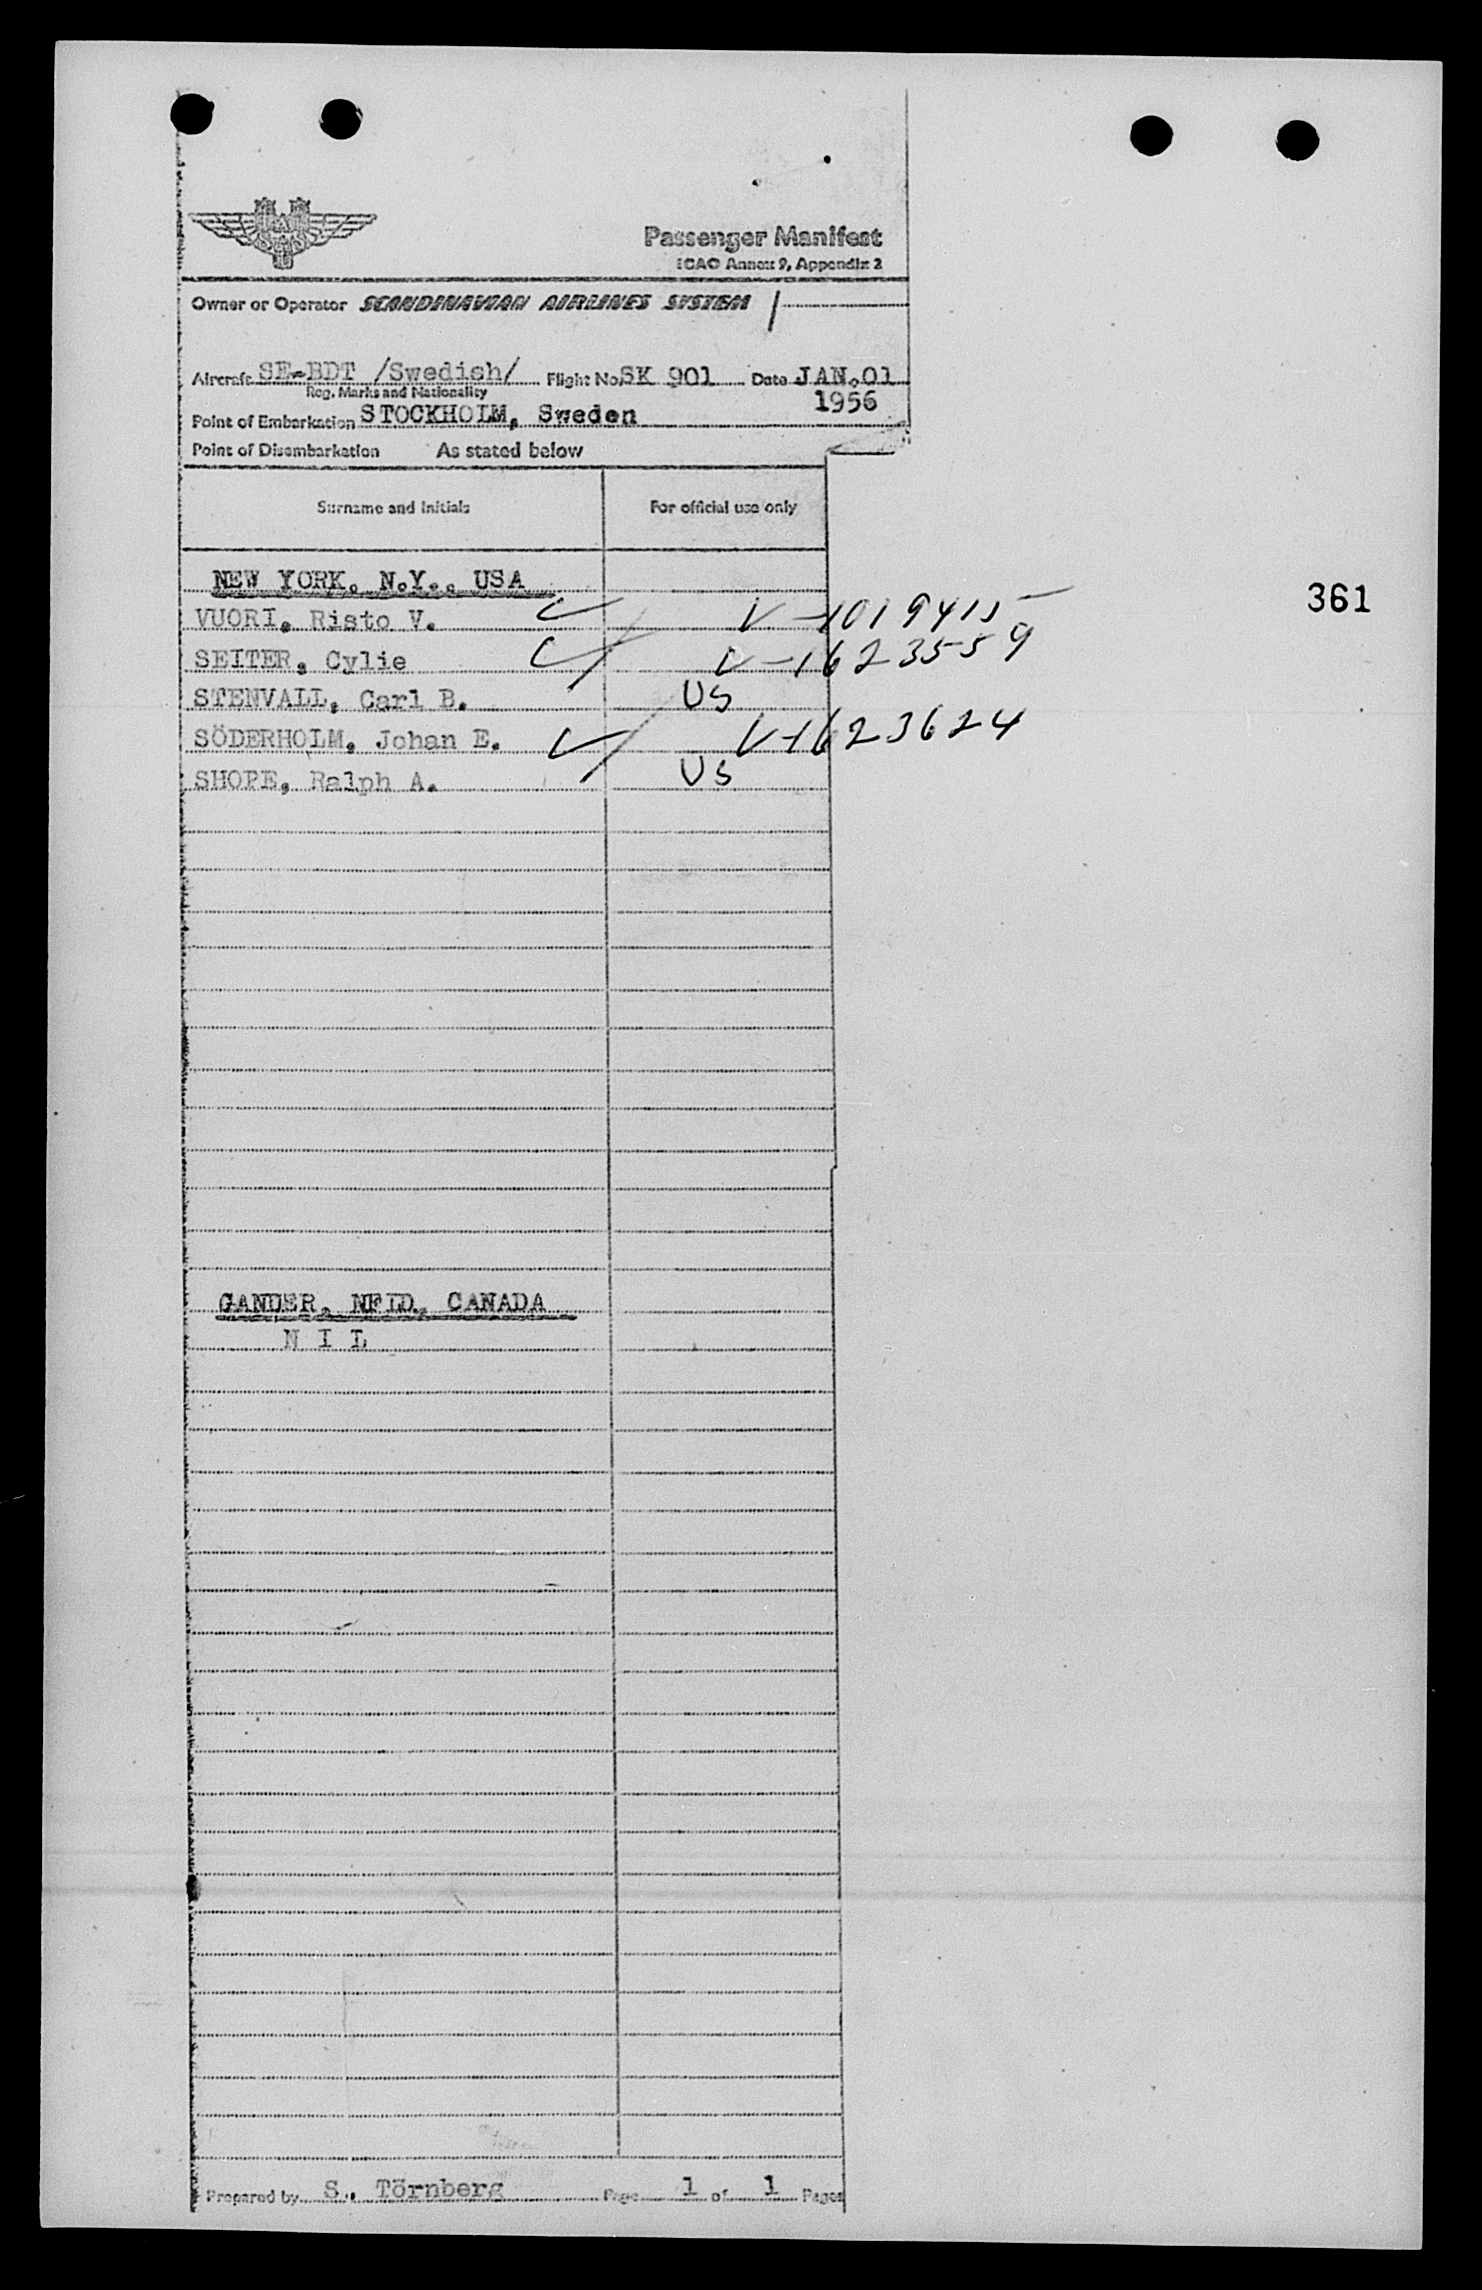 SAS
Passenger Manifest
ICAO Annex 9, Appendix 2
Owner or Operator SCANDINAVIAN AIRLINES SYSTEM
Aircraft SE-BDT /Swedish/ Flight No. SK 901 Date JAN.01
Reg. Marks and Nationality 1956
Point of Embarkation STOCKHOLM, Sweden
Point of Disembarkation As stated below
Surname and Initials For official use only
NEW YORK, N.Y., USA
361
VUORI, Risto V. V-1019415
SEITER, Cylie V-1623559
STENVALL, Carl B. US
SÖDERHOLM, Johan E. V-1623624
SHOPE, Ralph A. US
GANDER, NFLD., CANADA
N I L
Prepared by S. Törnberg Page 1 of 1 Pages